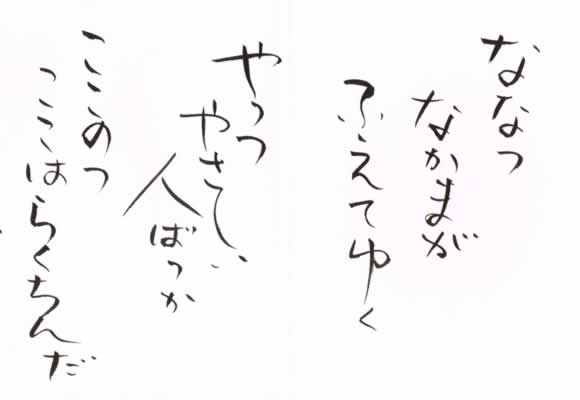 ななつ
なかまが
ふえてゆく
やっつ
やさしい
人ばっか
ここのつ
ここはらくちんだ